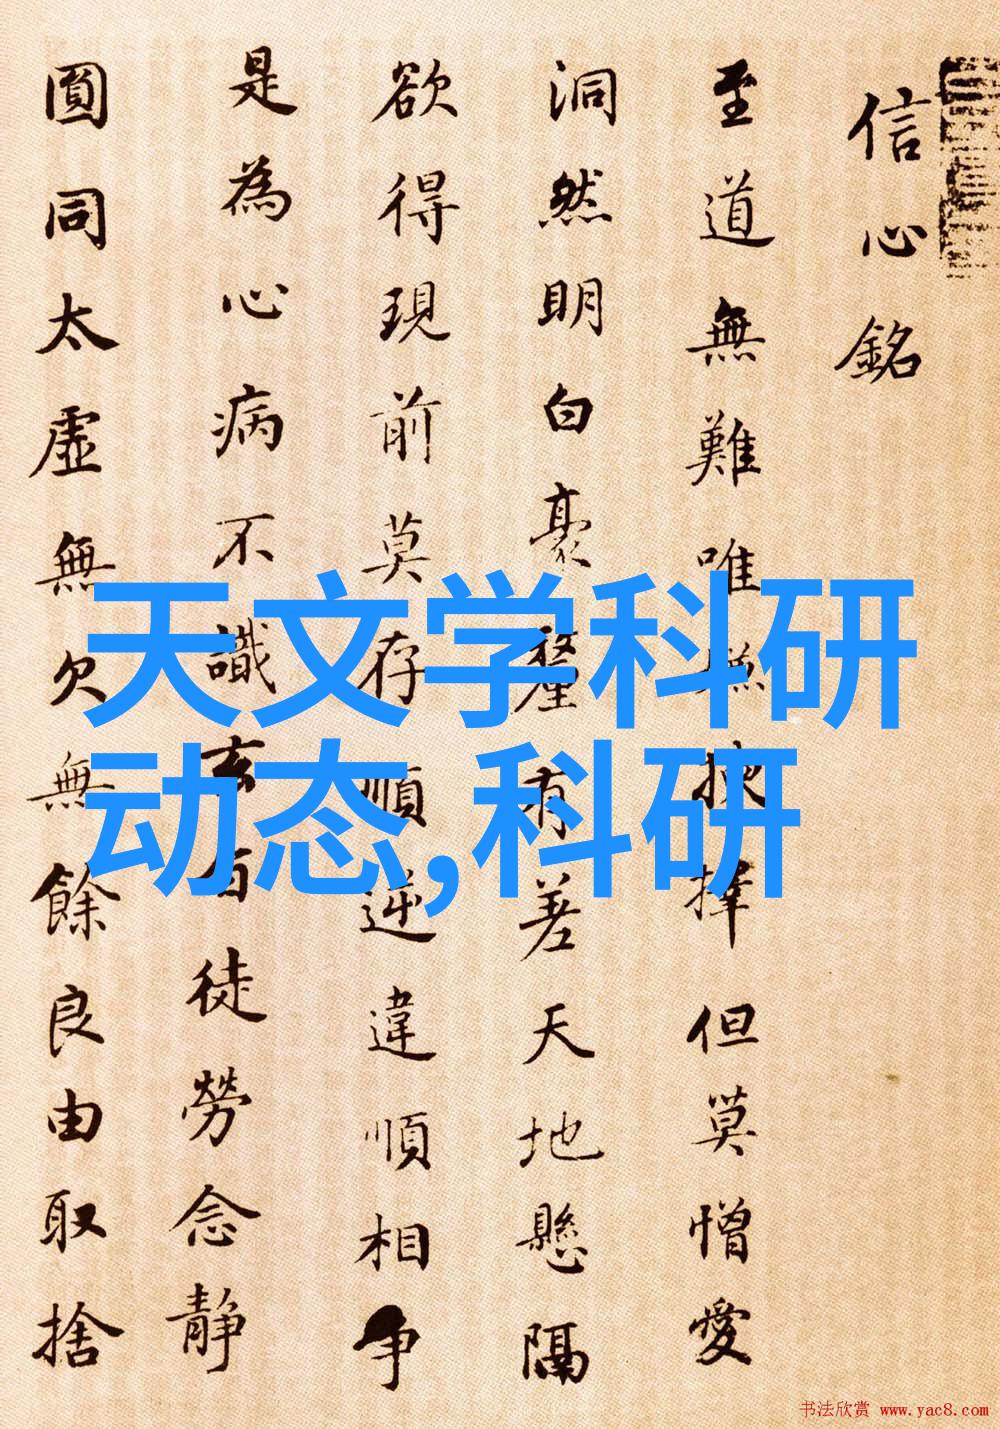 信心銘
至道無難唯嫌揀擇但莫憎愛
洞然明白豪釐有差天地懸隔
欲得現前莫存順逆違順相争
是為心病不識玄旨徒勞念静
圓同太虛無欠無餘良由取捨
天文学科研
动态,科研
书法欣赏 www.yac8.com